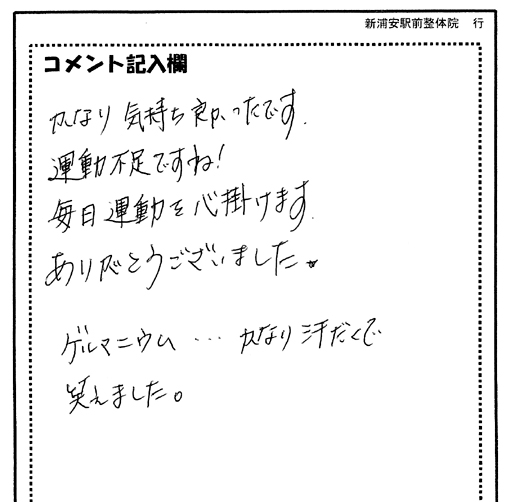 新浦安駅前整体院 行
コメント記入欄
かなり気持ち良かったです.
運動不足ですね!
毎日運動を心掛けます.
ありがとうございました。
ゲルマニウム … かなり汗だくで
笑えました。